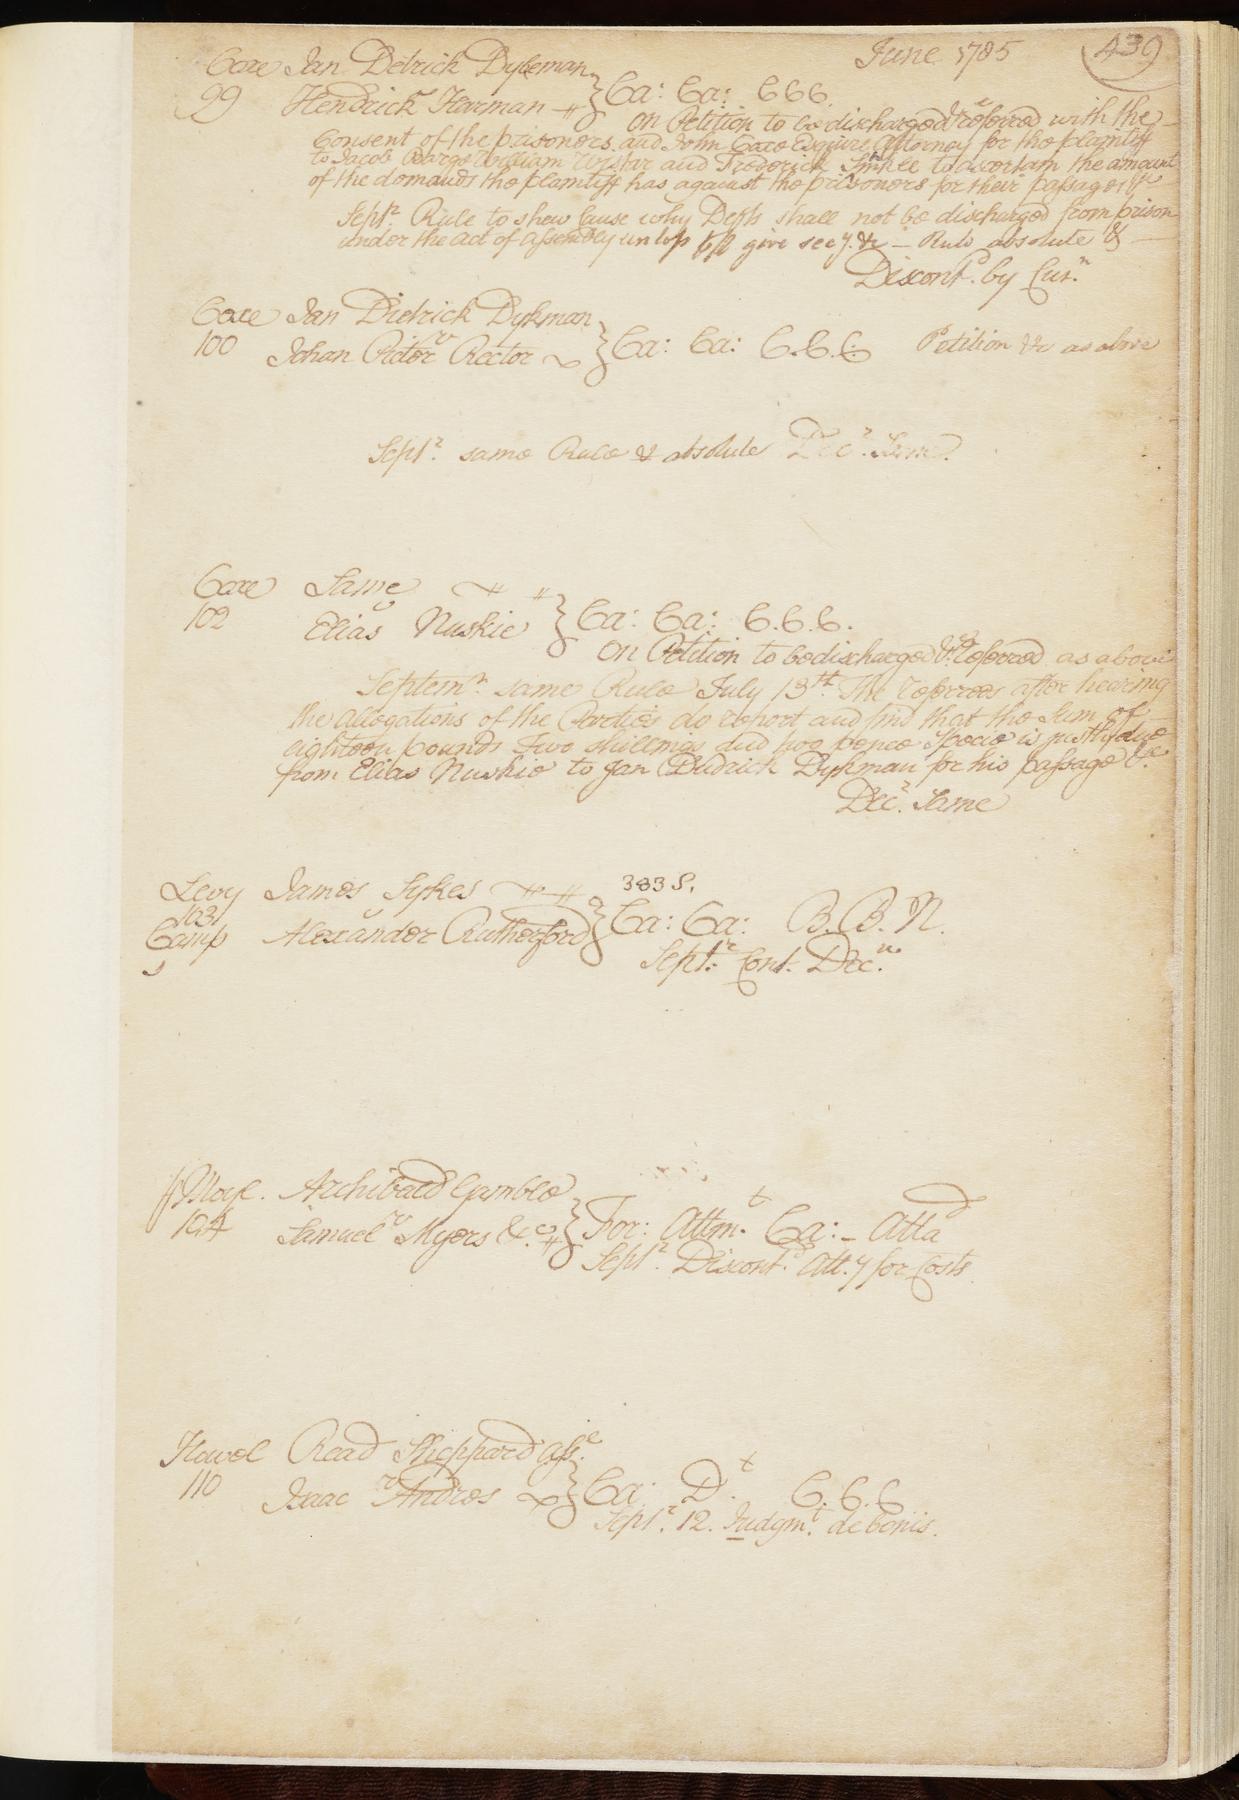 June 1785 439
Coxe Jan Detrick Dykeman
99 Hendrick Harman } Ca: Ca: C C C
On Petition to be discharged &c referred with the
Consent of the prisoners and John Coxe Esquire Attorney for the plaintiff
to Jacob Barge William Wister and Frederick to ascertain the amount
of the demands the plaintiff has against the prisoners for their passages &c
Septr. Rule to shew Cause why Defts shall not be discharged from prison
under the act of assembly unless plff give secy. &c — Rule absolute &
Discontd. by Cur.n
Coxe Jan Dietrick Dykman
100 v
Johan Rector } Ca: Ca: C.C.C Petition &c as above
Septr. same Rule & absolute Decr. Same.
Coxe Same
102 v
Elias Nuskie } Ca: Ca: C.C.C.
On Petition to be discharged &c referred as above
Septemr. same Rule July 13th. The referrees after hearing
the allegations of the Parties do report and find that the Sum of
eighteen pounds Two shillings and two pence Specie is justly due
from Elias Nuskie to Jan Didrick Dykman for his passage &c.
Decr. Same
Levy James Sykes 383 S.
103 v
Camp Alexander Rutherford } Ca: Ca: B.B.N.
Septr. Cont. Dec.
Archibald Gamble
104 v
Samuel Myers &c. } For: Attmt. Ca: — Atta
Septr. Discontd. Att.y for Costs
Howel Read Sheppard asse.
110 v
Isaac Andros } Ca D.t C.C.C
Septr. 12. Judgmt. de bonis.